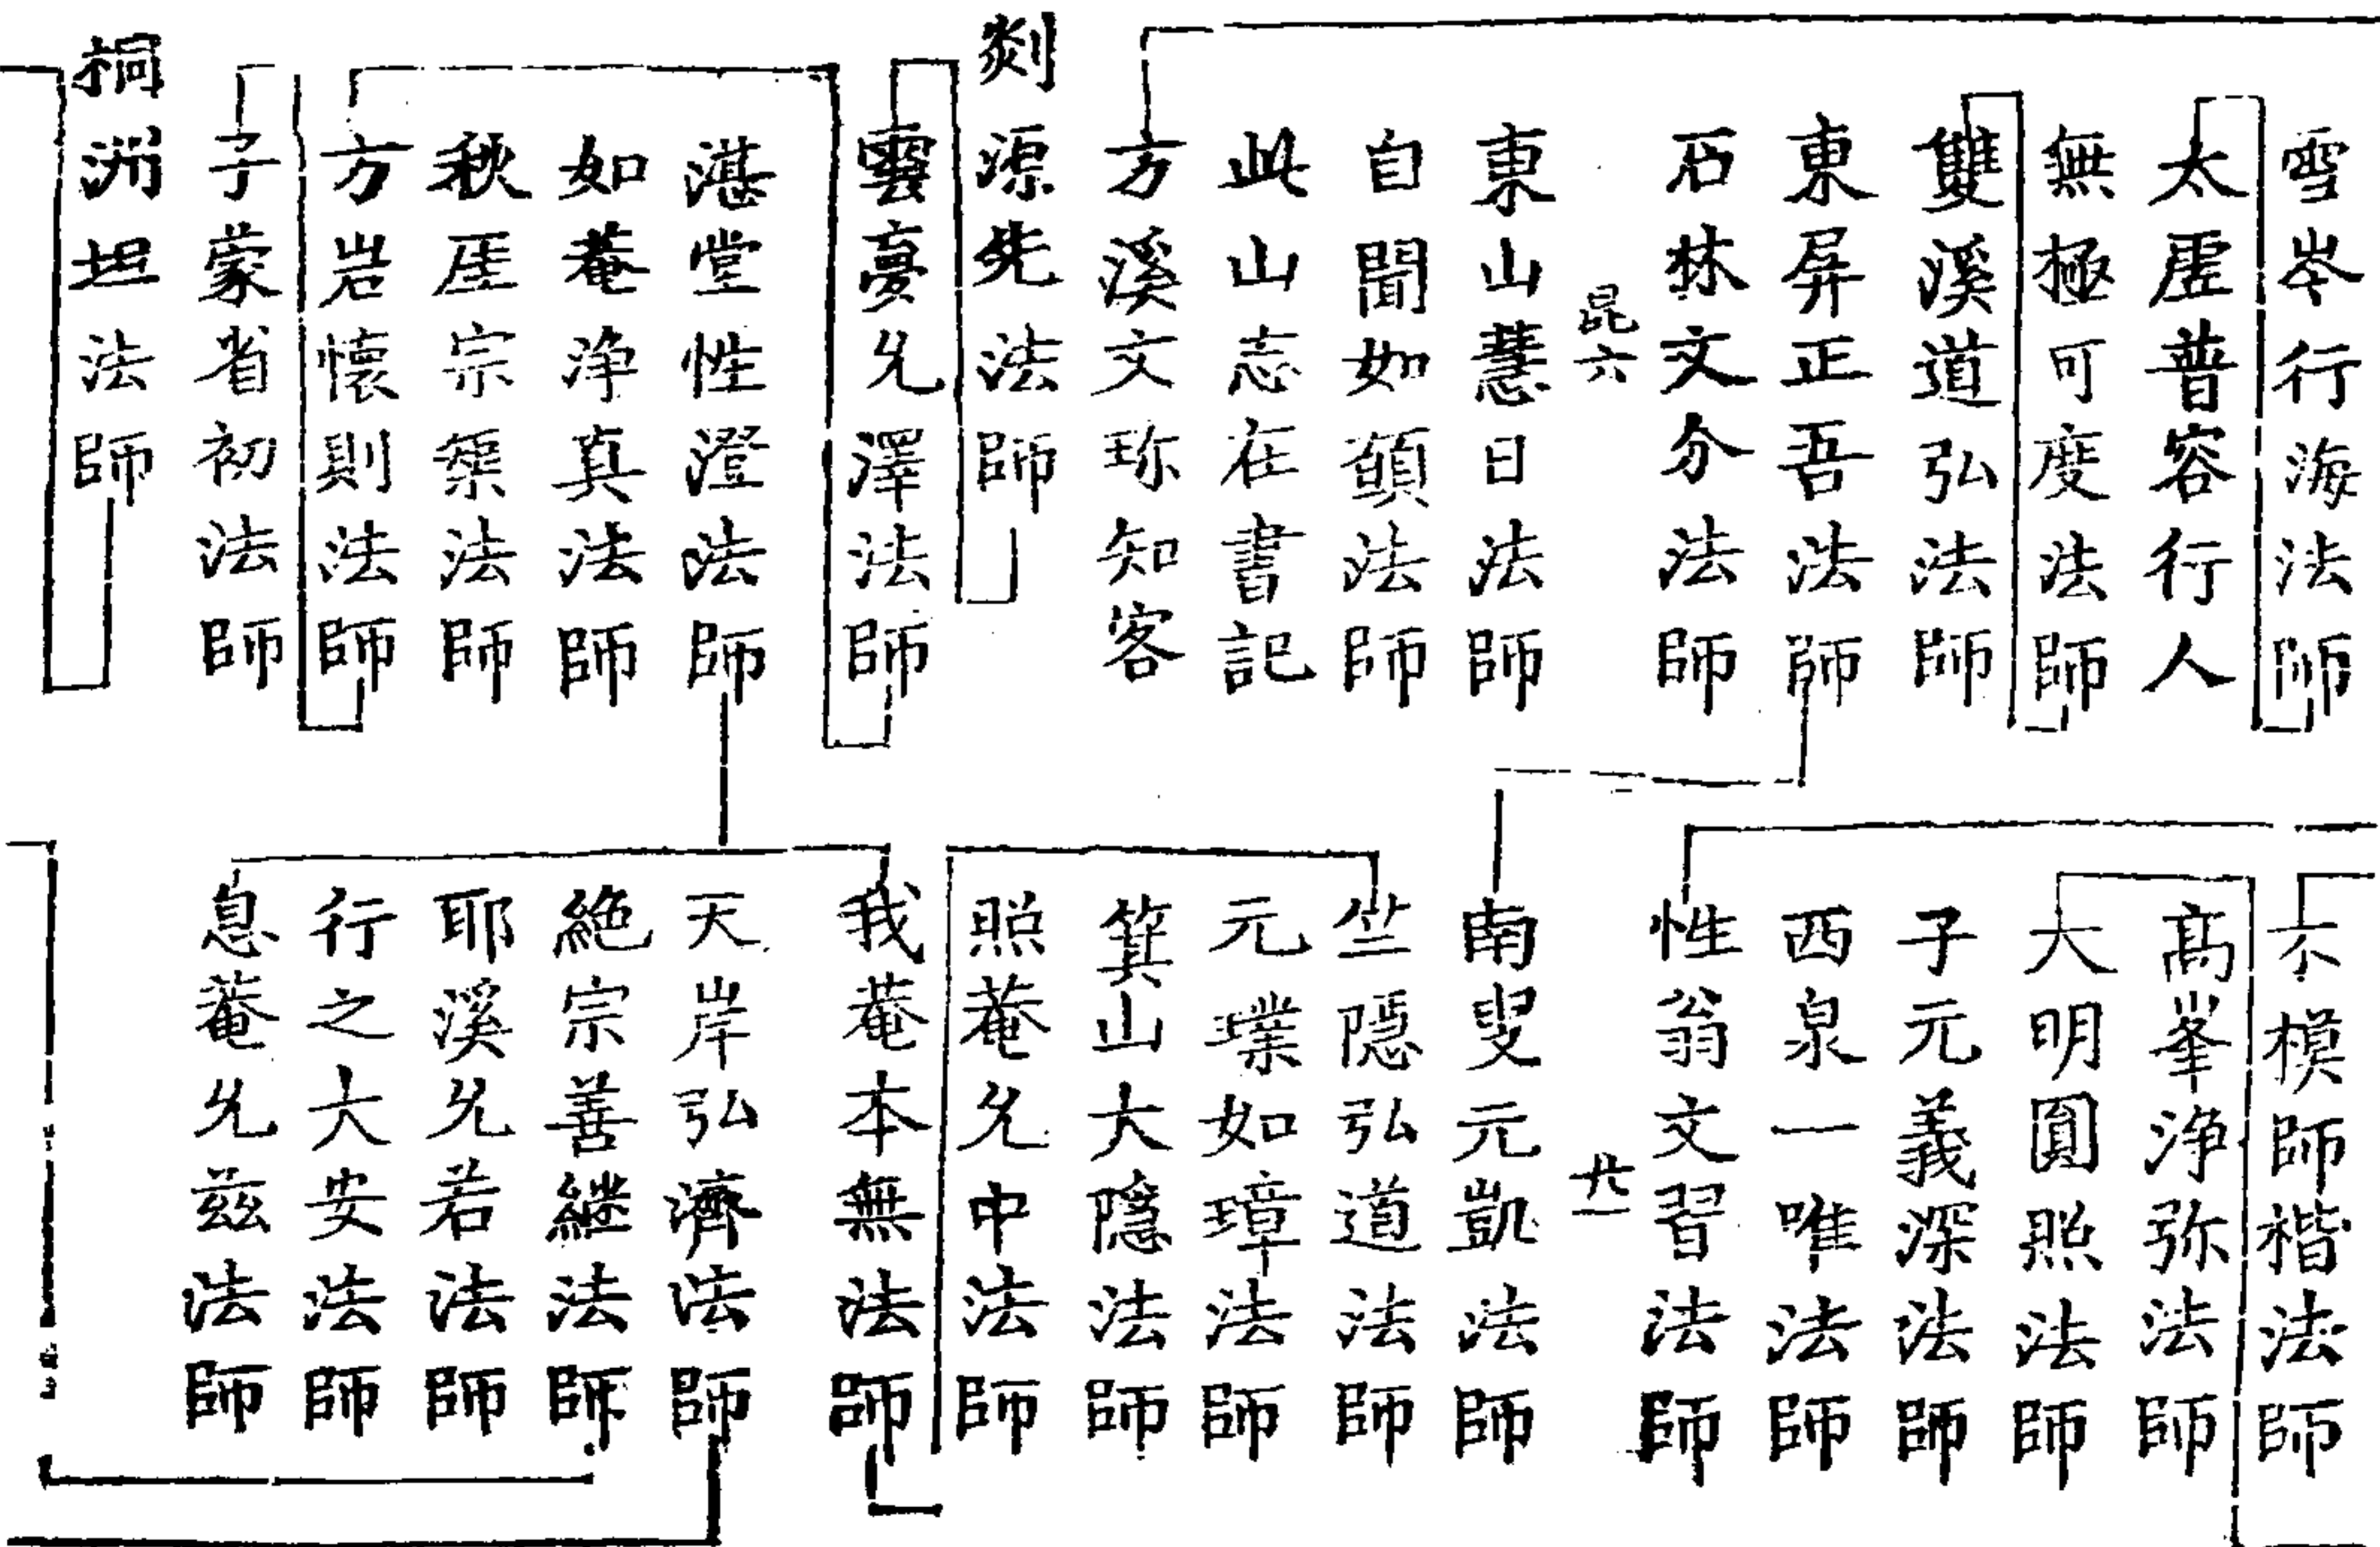 雪岑行海法師
太虛普容行人
無極可度法師
雙溪道弘法師
東屏正吾法師
石林文介法師
昆六
東山慧日法師
自聞如顗法師
此山志在書記
方溪文珎知客
剡源先法師
雲夢允澤法師
湛堂性澄法師
如菴浄真法師
秋厓宗䉶法師
方岩懷則法師
子蒙省初法師
桐洲坦法師
不模師楷法師
髙峯浄弥法師
大明圓照法師
子元義深法師
西泉一唯法師
性翁文習法師
廿一
南叟元凱法師
竺隠弘道法師
元璞如璋法師
箕山大隱法師
照菴允中法師
我菴本無法師
天岸弘濟法師
絶宗善継法師
耶溪允若法師
行之大安法師
息菴允兹法師